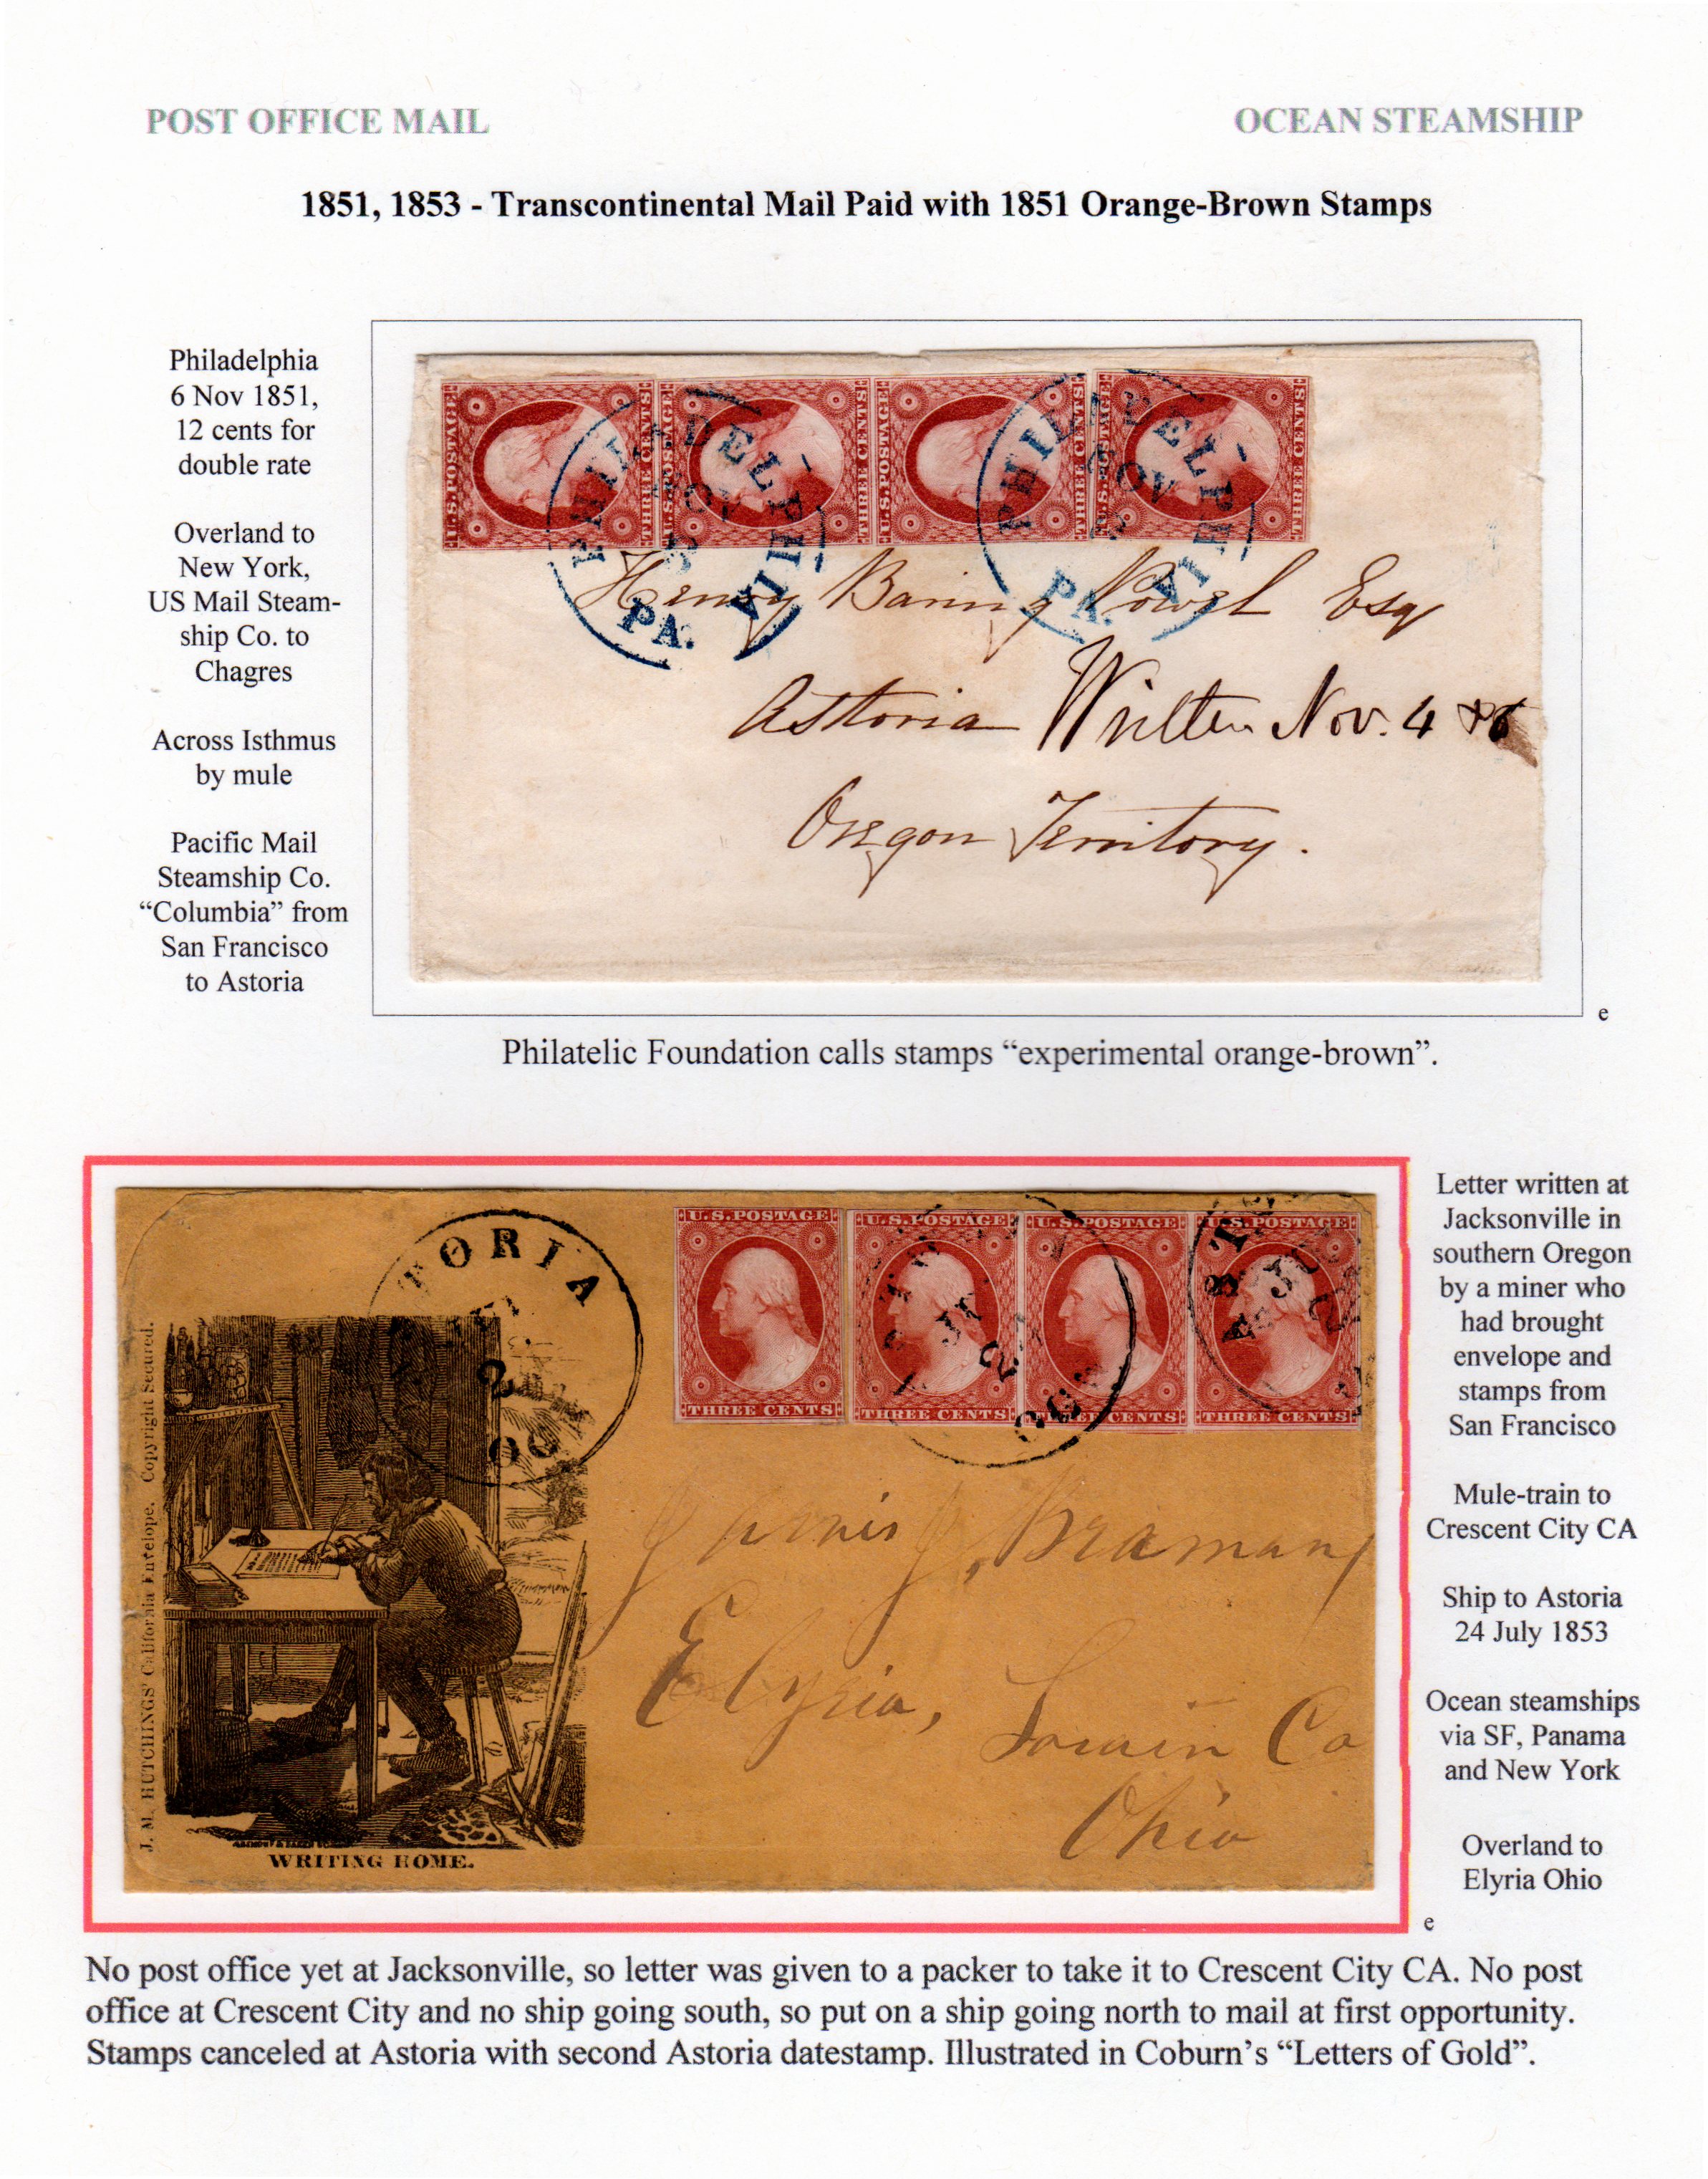 POST OFFICE MAIL
OCEAN STEAMSHIP
1851, 1853 - Transcontinental Mail Paid with 1851 Orange-Brown Stamps
Philadelphia
6 Nov 1851,
12 cents for
double rate
Overland to
New York,
US Mail Steam-
ship Co. to
Chagres
Across Isthmus
by mule
Pacific Mail
Steamship Co.
“Columbia” from
San Francisco
to Astoria
U.S.POSTAGE THREE CENTS
U.S.POSTAGE THREE CENTS
U.S.POSTAGE THREE CENTS
U.S.POSTAGE THREE CENTS
PHILADELPHIA
NOV
PA.
PHILADELPHIA
NOV
PA.
Henry Baring Powel Esq
Astoria Written Nov. 4
Oregon Territory.
e
Philatelic Foundation calls stamps “experimental orange-brown”.
TORIA
2
OG
U.S.POSTAGE
THREE CENTS
U.S.POSTAGE
THREE CENTS
U.S.POSTAGE
THREE CENTS
U.S.POSTAGE
THREE CENTS
J. M. HUTCHINGS' California Envelope. Copyright Secured.
WRITING HOME.
Jarvis J. Bramany
Elyria,
Lorain Co
Ohio
Letter written at
Jacksonville in
southern Oregon
by a miner who
had brought
envelope and
stamps from
San Francisco
Mule-train to
Crescent City CA
Ship to Astoria
24 July 1853
Ocean steamships
via SF, Panama
and New York
Overland to
Elyria Ohio
e
No post office yet at Jacksonville, so letter was given to a packer to take it to Crescent City CA. No post
office at Crescent City and no ship going south, so put on a ship going north to mail at first opportunity.
Stamps canceled at Astoria with second Astoria datestamp. Illustrated in Coburn’s “Letters of Gold”.